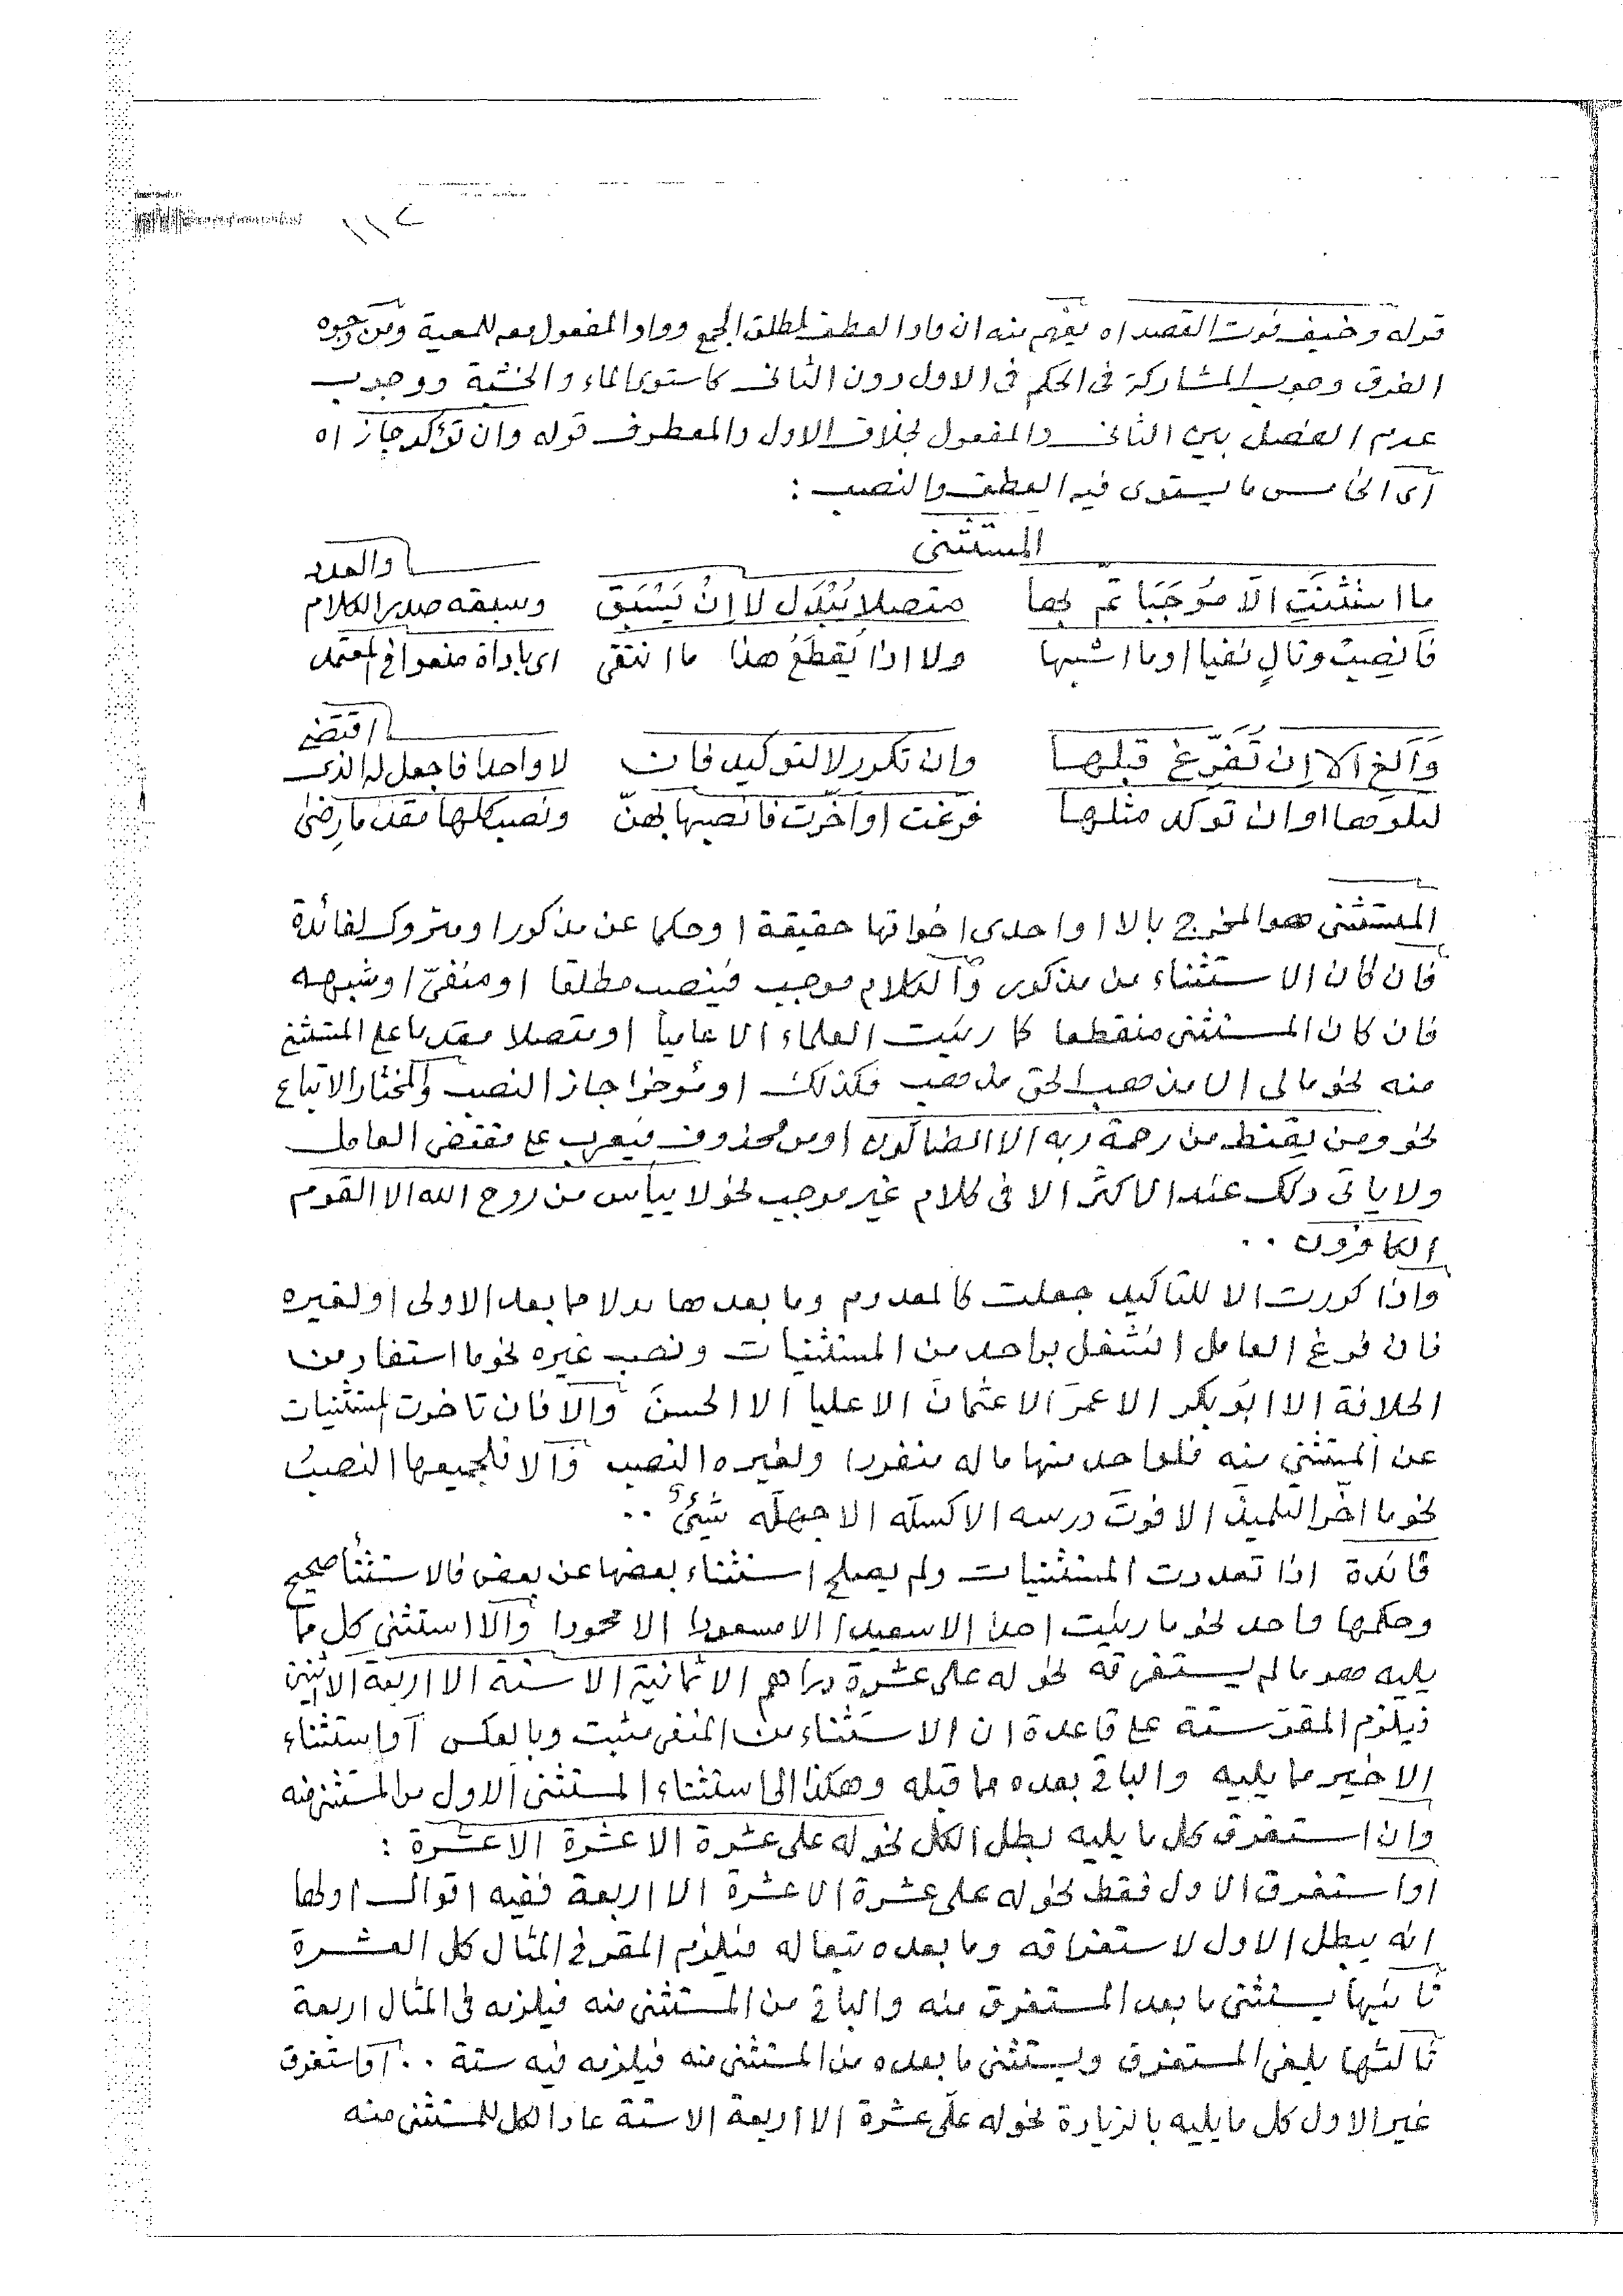 ١١٢
قوله وخيف فوت القصد اه يفهم منه ان واو العطف لمطلق الجمع وواو المفعول معه للمعية ومن وجوه
الفرق وجوب المشاركة فى الحكم فى الاول دون الثانى كاستوى الماء والخشبة ووجوب
عدم الفصل بين الثانى والمفعول بخلاف الاول والمعطوف قوله وان تؤكد جاز اه
اى الخامس ما يستوى فيه العطف والنصب :
المستثنى
ما استثنت الا موجبا تم بها متصلا يبدل لا ان يسبق وسبقه صدر الكلام والعدد
فانصب وتال نفيا او ما اشبها ولا اذا يقطع هذا ما انتقى اى باداة منعوا فى المعتمد
والغ الا ان تفرغ قبلها وان تكرر لا لتوكيد فان لا واحدا فاجعل له الذى اقتضى
لتلوها او ان توكد مثلها فرغت او اخرت فانصبها بهن ونصب كلها مقدما رضى
المستثنى هو المخرج بالا او احدى اخواتها حقيقة او حكما عن مذكور او متروك لفائدة
فان كان الاستثناء من مذكور والكلام موجب فينصب مطلقا او منفىّ او شبهه
فان كان المستثنى منقطعا كما رئيت العلماء الا عاميا او متصلا مقدما على المستثنى
منه نحو مالى الا مذهب الحق مذهب فكذلك او مؤخرا جاز النصب والمختار الاتباع
نحو ومن يقنط من رحمة ربه الا الضالون او من محذوف فيعرب على مقتضى العامل
ولا ياتى ذلك عند الاكثر الا فى كلام غير موجب نحو لا ييأس من روح الله الا القوم
الكافرون ..
واذا كررت الا للتاكيد جعلت كالمعدوم وما بعدها بدلا مما بعد الاولى او لغيره
فان فرغ العامل اشتغل بواحد من المستثنيات ونصب غيره نحو ما استفاد من
الخلافة الا ابو بكر الا عمر الا عثمان الا عليا الا الحسن والا فان تاخرت المستثنيات
عن المستثنى منه فلواحد منها ما له منفردا ولغيره النصب والا فلجميعها النصب
نحو ما اخر التلميذ الا فوت درسه الا كسله الا جهله شيئ ..
فائدة اذا تعددت المستثنيات ولم يصلح استثناء بعضها عن بعض فالاستثنأ صحيح
وحكمها واحد نحو ما رئيت احدا الا سعيدا الا مسعودا الا محمودا والا استثنى كل ما
يليه هو ما لم يستغرقه نحو له على عشرة دراهم الا ثمانية الا ستة الا اربعة الا اثنين
فيلزم المقر ستة على قاعدة ان الاستثناء من المنفى مثبت وبالعكس او استثناء
الاخير مما يليه والباقى بعده مما قبله وهكذا الى استثناء المستثنى الاول من المستثنى منه
وان استغرق كل ما يليه بطل الكل نحو له على عشرة الا عشرة الا عشرة :
او استغرق الاول فقط نحو له على عشرة الا عشرة الا اربعة ففيه اقوال اولها
انه يبطل الاول لاستغراقه وما بعده تبعا له فيلزم المقر فى المثال كل العشرة
ثانيها يستثنى ما بعد المستغرق منه والباقى من المستثنى منه فيلزمه فى المثال اربعة
ثالثها يلغى المستغرق ويستثنى ما بعده من المستثنى منه فيلزمه فيه ستة .. او استغرق
غير الاول كل ما يليه بالزيادة نحو له على عشرة الا اربعة الا ستة عاد الكل للمستثنى منه